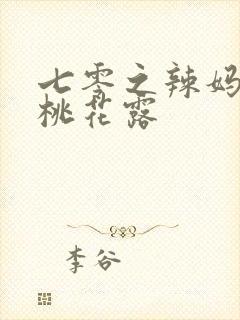 七零之辣妈
桃花露
李谷